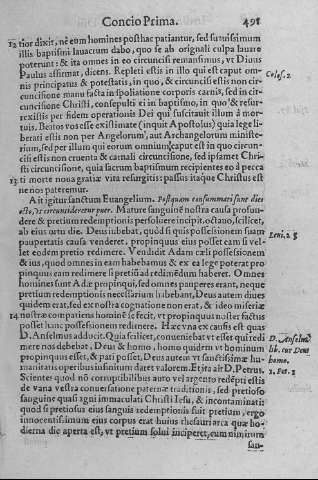 Concio Prima. 491
12 tior dixit, nè eum homines posthac patiantur, sed suauissimum
illis baptismi lauacrum dabo, quo se ab originali culpa lauare
poterunt: & ita omnes in eo circuncisi remansimus, vt Diuus
Paulus affirmat, dicens. Repleti estis in illo qui est caput om- Colos. 2.
nis principatus & potestatis, in quo & circuncisi estis non cir-
cuncisione manu facta in spoliatione corporis carnis, sed in cir-
cuncisione Christi, consepulti ei in baptismo, in quo & resur-
rexistis per fidem operationis Dei qui suscitauit illum à mor-
tuis. Itentot vos esse existimate (inquit Apostolus) quia lege li-
berati estis non per Angelorum, aut Archangelorum ministe-
rium, sed per illum qui eorum omnium caput est in quo circun-
cisi estis non cruenta & carnali circuncisione, sed ipsamet Chri-
sti circuncisione, quia sacrum baptismum recipientes eo à pecca
13 ti morte noua gratiæ vita resurgitis: passus itaque Christus est
ne nos pateremur.
Ait igitur sanctum Euangelium. Postquam consummati sunt dies
octo, vt circuncideretur puer. Mature sanguinē nostra causa profun-
dere & pretium redemptionis persoluere incipit, octauo, scilicet,
ab eius ortu die. Deus iubebat, quòd si quis possessionem suam Leui. 25
paupertatis causa venderet, propinquus eius posset eam si vel-
let eodem pretio redimere. Vendidit Adam cæli possessionem
& ius, quod omnes in eam habebamus & ex ea lege poterat pro-
pinquus eam redimere si pretiū ad redimēdum haberet. Omnes
homines sunt Adæ propinqui, sed omnes pauperes erant, neque
pretium redemptionis necessarium habebant, Deus autem diues
quidem erat, sed ex nostra cognatione non erat, & ideo miseriæ
14 nostræ compatiens hominē se fecit, vt propinquus noster factus
posset hanc possessionem redimere. Hæc vna ex causis est quas
D. Anselmus adducit. Quia scilicet, conueniebat vt esset qui redi D. Anselm.
mere nos debebat, Deus & homo, homo quidem vt hominum lib. cur Deus
propinquus esset, & pati posset, Deus autem vt sanctissimæ hu- homo.
manitatis operibus infinitum daret valorem. Et ita ait D. Petrus. 1. Pet. 1
Scientes quod nō corruptibilibus auro vel argento redēpti estis
de vana vestra conuersatione paternæ traditionis, sed pretioso
sanguine quasi agni immaculati Christi Iesu, & incontaminati:
quòd si pretiosus eius sanguis redemptionis fuit pretium, ergo
innocentissimum eius corpus erat huius thesauri arca quæ ho-
dierna die aperta est, vt pretium solui inciperet, cum nimirum
san-